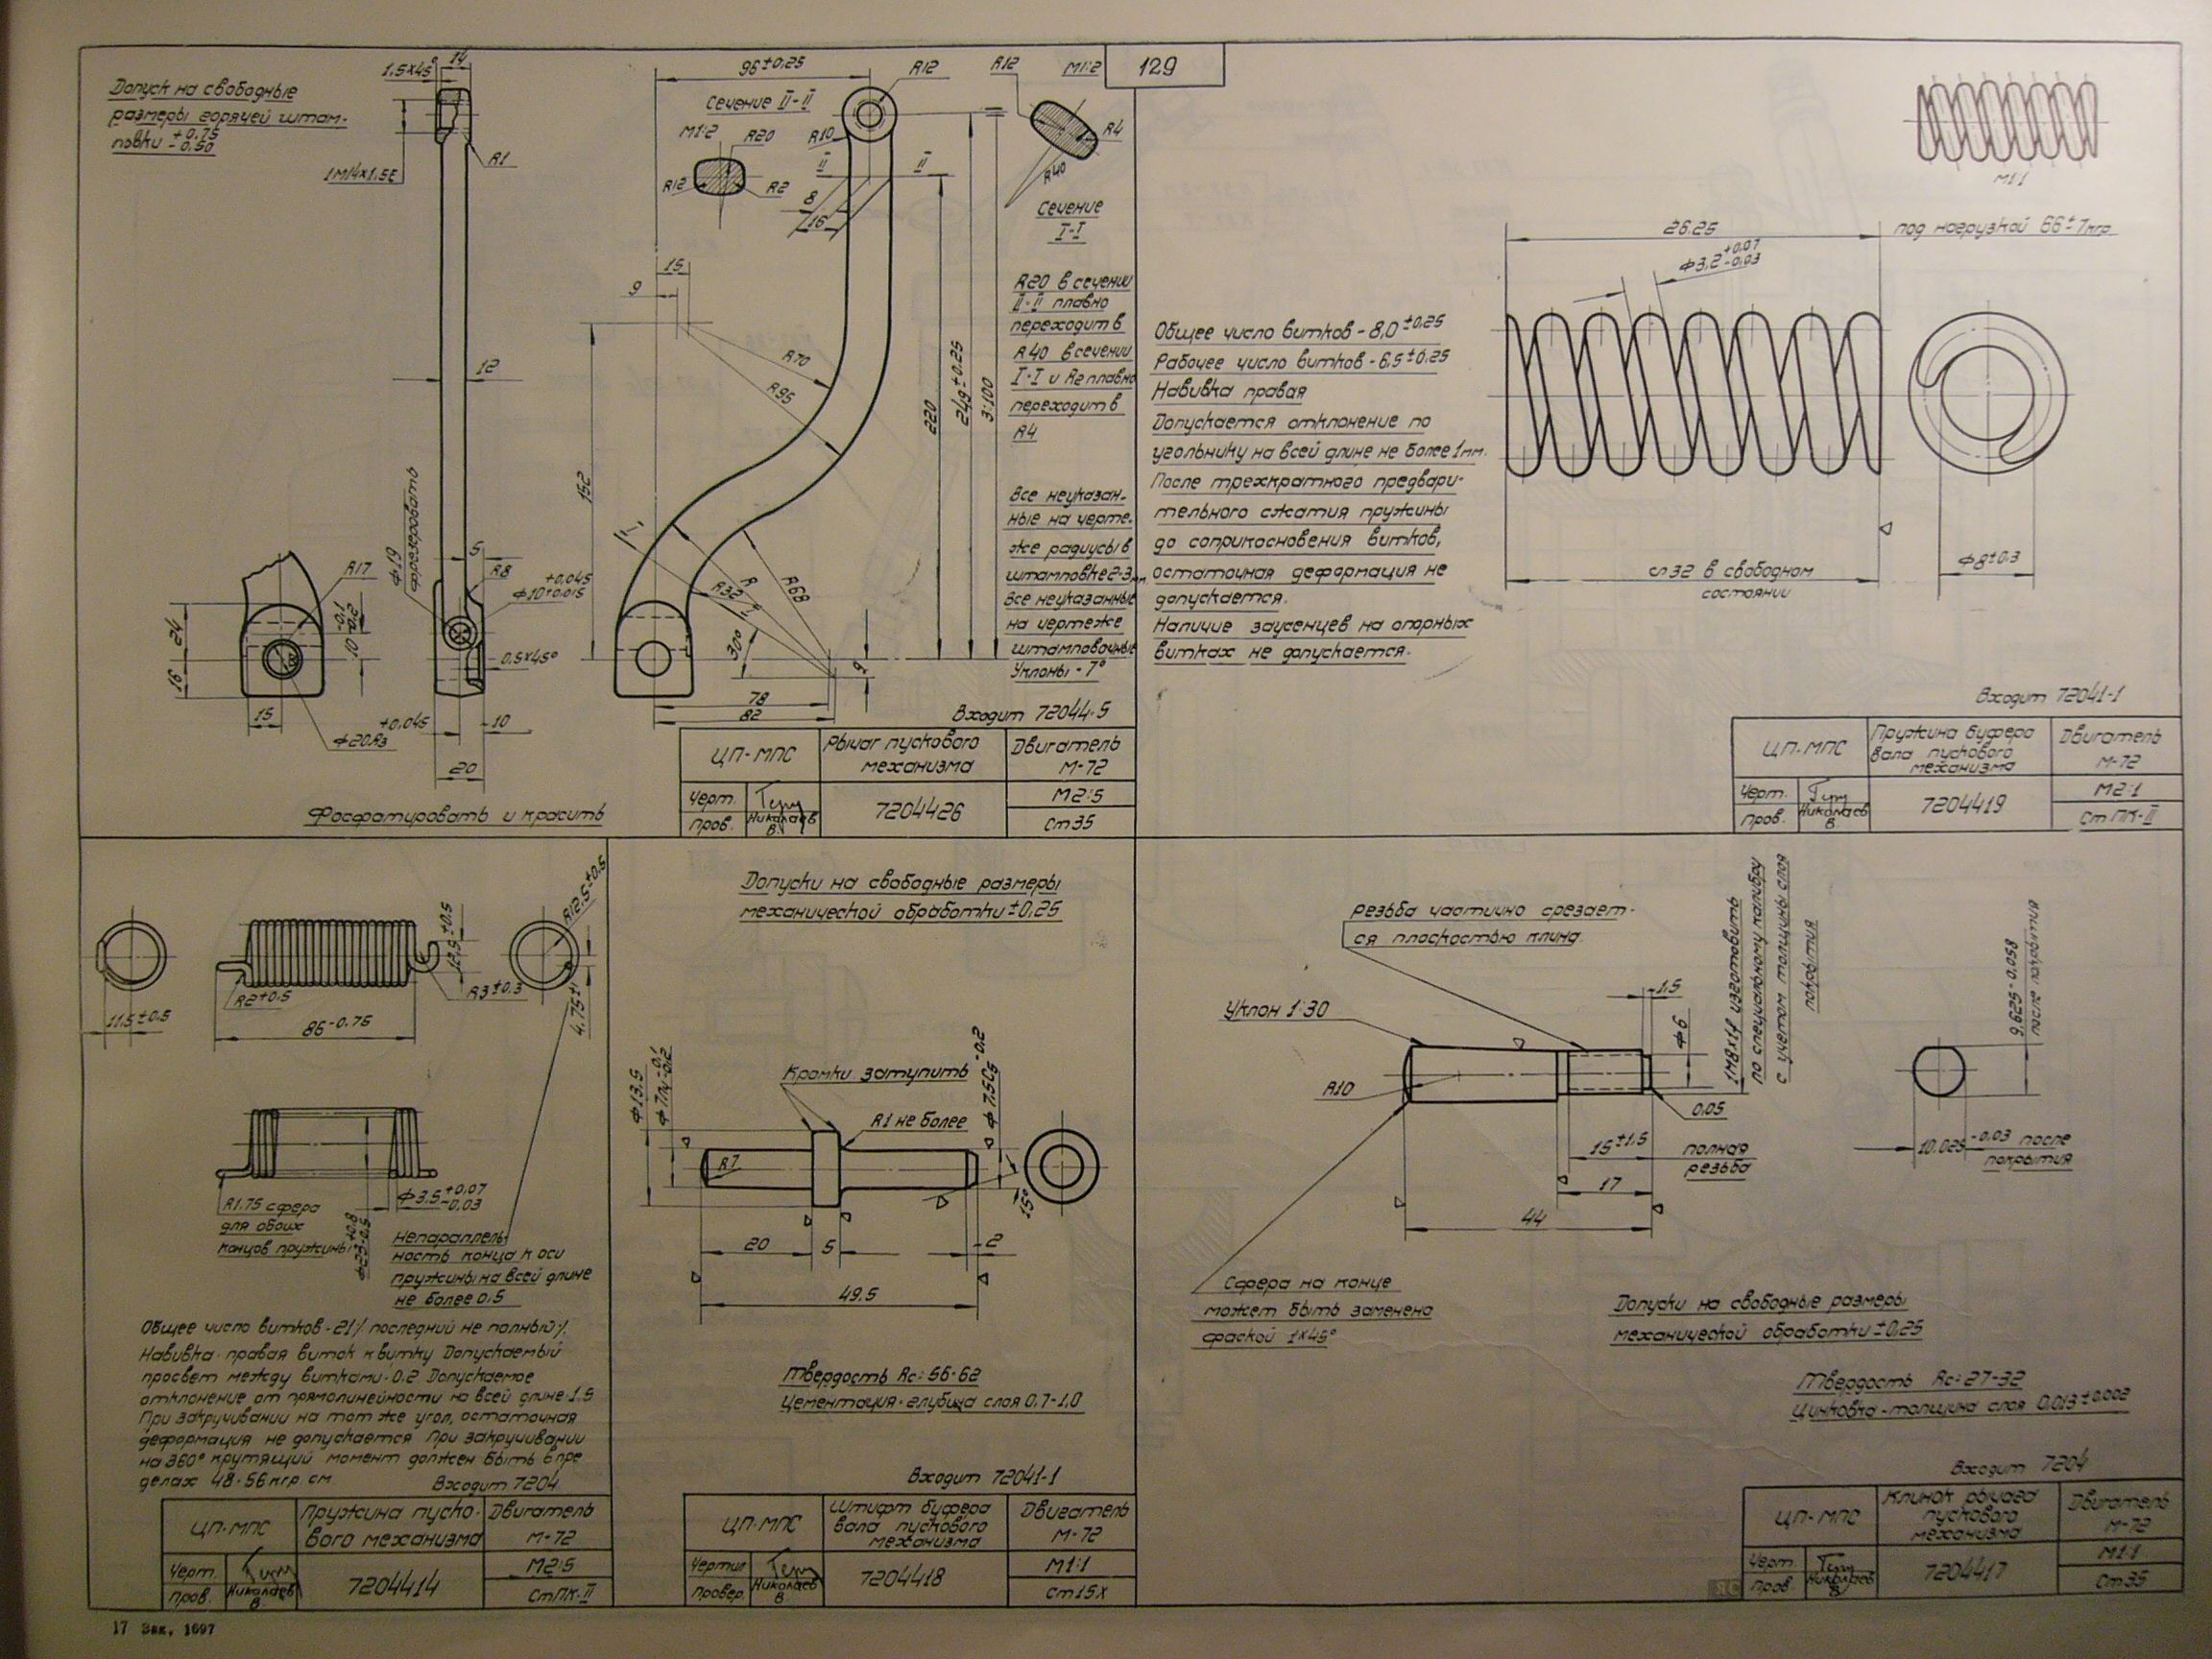 129
Допуск на свободные
размеры горячей штам-
повки +0,75 -0,50
1,5×45°
14
1М14×1.5Е
R1
12
Ф19
фрезеровать
5
R8
Ф10 +0,045 +0,015
0,5×45°
R17
10 -0,1 -0,2
24
16
15
Ф20Аз
+0,045
10
20
Фосфатировать и красить
96±0,25
Сечение II-II
М1:2
R20
R12
R2
R12
R10
II
II
8
16
15
9
R70
R95
152
220
249±0.25
3:100
R32
R
R68
30°
9
78
82
R12
М1:2
R4
R40
Сечение
I-I
R20 в сечении
II-II плавно
переходит в
R40 в сечении
I-I и R2 плавно
переходит в
R4
Все неуказан-
ные на черте-
же радиусы в
штамповке 2-3мм
Все неуказанные
на чертеже
штамповочные
Уклоны - 7°
Входит 72044-5
ЦП-МПС
Рычаг пускового
механизма
Двигатель
М-72
Черт.
Пров.
Николаев
В
7204426
М2:5
Ст35
М1:1
26.25
под нагрузкой 66±7кгр
Ф3,2 +0,07 -0,03
Общее число витков - 8,0±0,25
Рабочее число витков - 6,5±0,25
Навивка правая
Допускается отклонение по
угольнику на всей длине не более 1мм.
После трехкратного предвари-
тельного сжатия пружины
до соприкосновения витков,
остаточная деформация не
допускается.
Наличие заусенцев на опорных
витках не допускается.
∽32 в свободном
состоянии
Ф8±0,3
Входит 72041-1
ЦП-МПС
Пружина буфера
вала пускового
механизма
Двигатель
М-72
Черт.
Пров.
Николаев
В
7204419
М2:1
Ст ПК-II
R12,5±0,5
12,5±0,5
R2±0,5
R3±0,3
11,5±0,5
86-0,75
4,75±1
R1,75 сфера
для обоих
концов пружины
Ф3,5 +0,07 -0,03
Непараллель-
ность конца к оси
пружины на всей длине
не более 0,5
Общее число витков - 21½ последний не полный ½
Навивка - правая виток к витку Допускаемый
просвет между витками - 0,2 Допускаемое
отклонение от прямолинейности на всей длине - 1,5
При закручивании на тот же угол, остаточная
деформация не допускается При закручивании
на 360° крутящий момент должен быть в пре
делах 48-56 кгр. см
Входит 7204
ЦП-МПС
Пружина пуско-
вого механизма
Двигатель
М-72
Черт.
Пров.
Николаев
В
7204414
М2:5
СтПК-II
Допуски на свободные размеры
механической обработки ±0,25
Ф13,5
Кромки затупить
R1 не более
R7
15°
20
5
2
49.5
Твердость Rc: 56-62
Цементация - глубина слоя 0,7-1,0
Входит 72041-1
ЦП-МПС
Штифт буфера
вала пускового
механизма
Двигатель
М-72
Чертил
Провер.
Николаев
В
7204418
М1:1
Ст15Х
Резьба частично срезает-
ся плоскостью клина
Уклон 1:30
R10
1.5
Ф6
1М8×1f изготовить
по специальному калибру
с учетом толщины слоя
покрытия
0,05
15±1,5
полная
резьба
17
44
9,625-0.058
после покрытия
10.025-0.03 после
покрытия
Сфера на конце
может быть заменена
фаской 1×45°
Допуски на свободные размеры
механической обработки ±0,25
Твердость Rc: 27-32
Цинковка - толщина слоя 0,013±0,002
Входит 7204
ЦП-МПС
Клинок рычага
пускового
механизма
Двигатель
М-72
Черт.
Пров.
Николаев
В
7204417
М1:1
Ст35
17 Зак. 1697